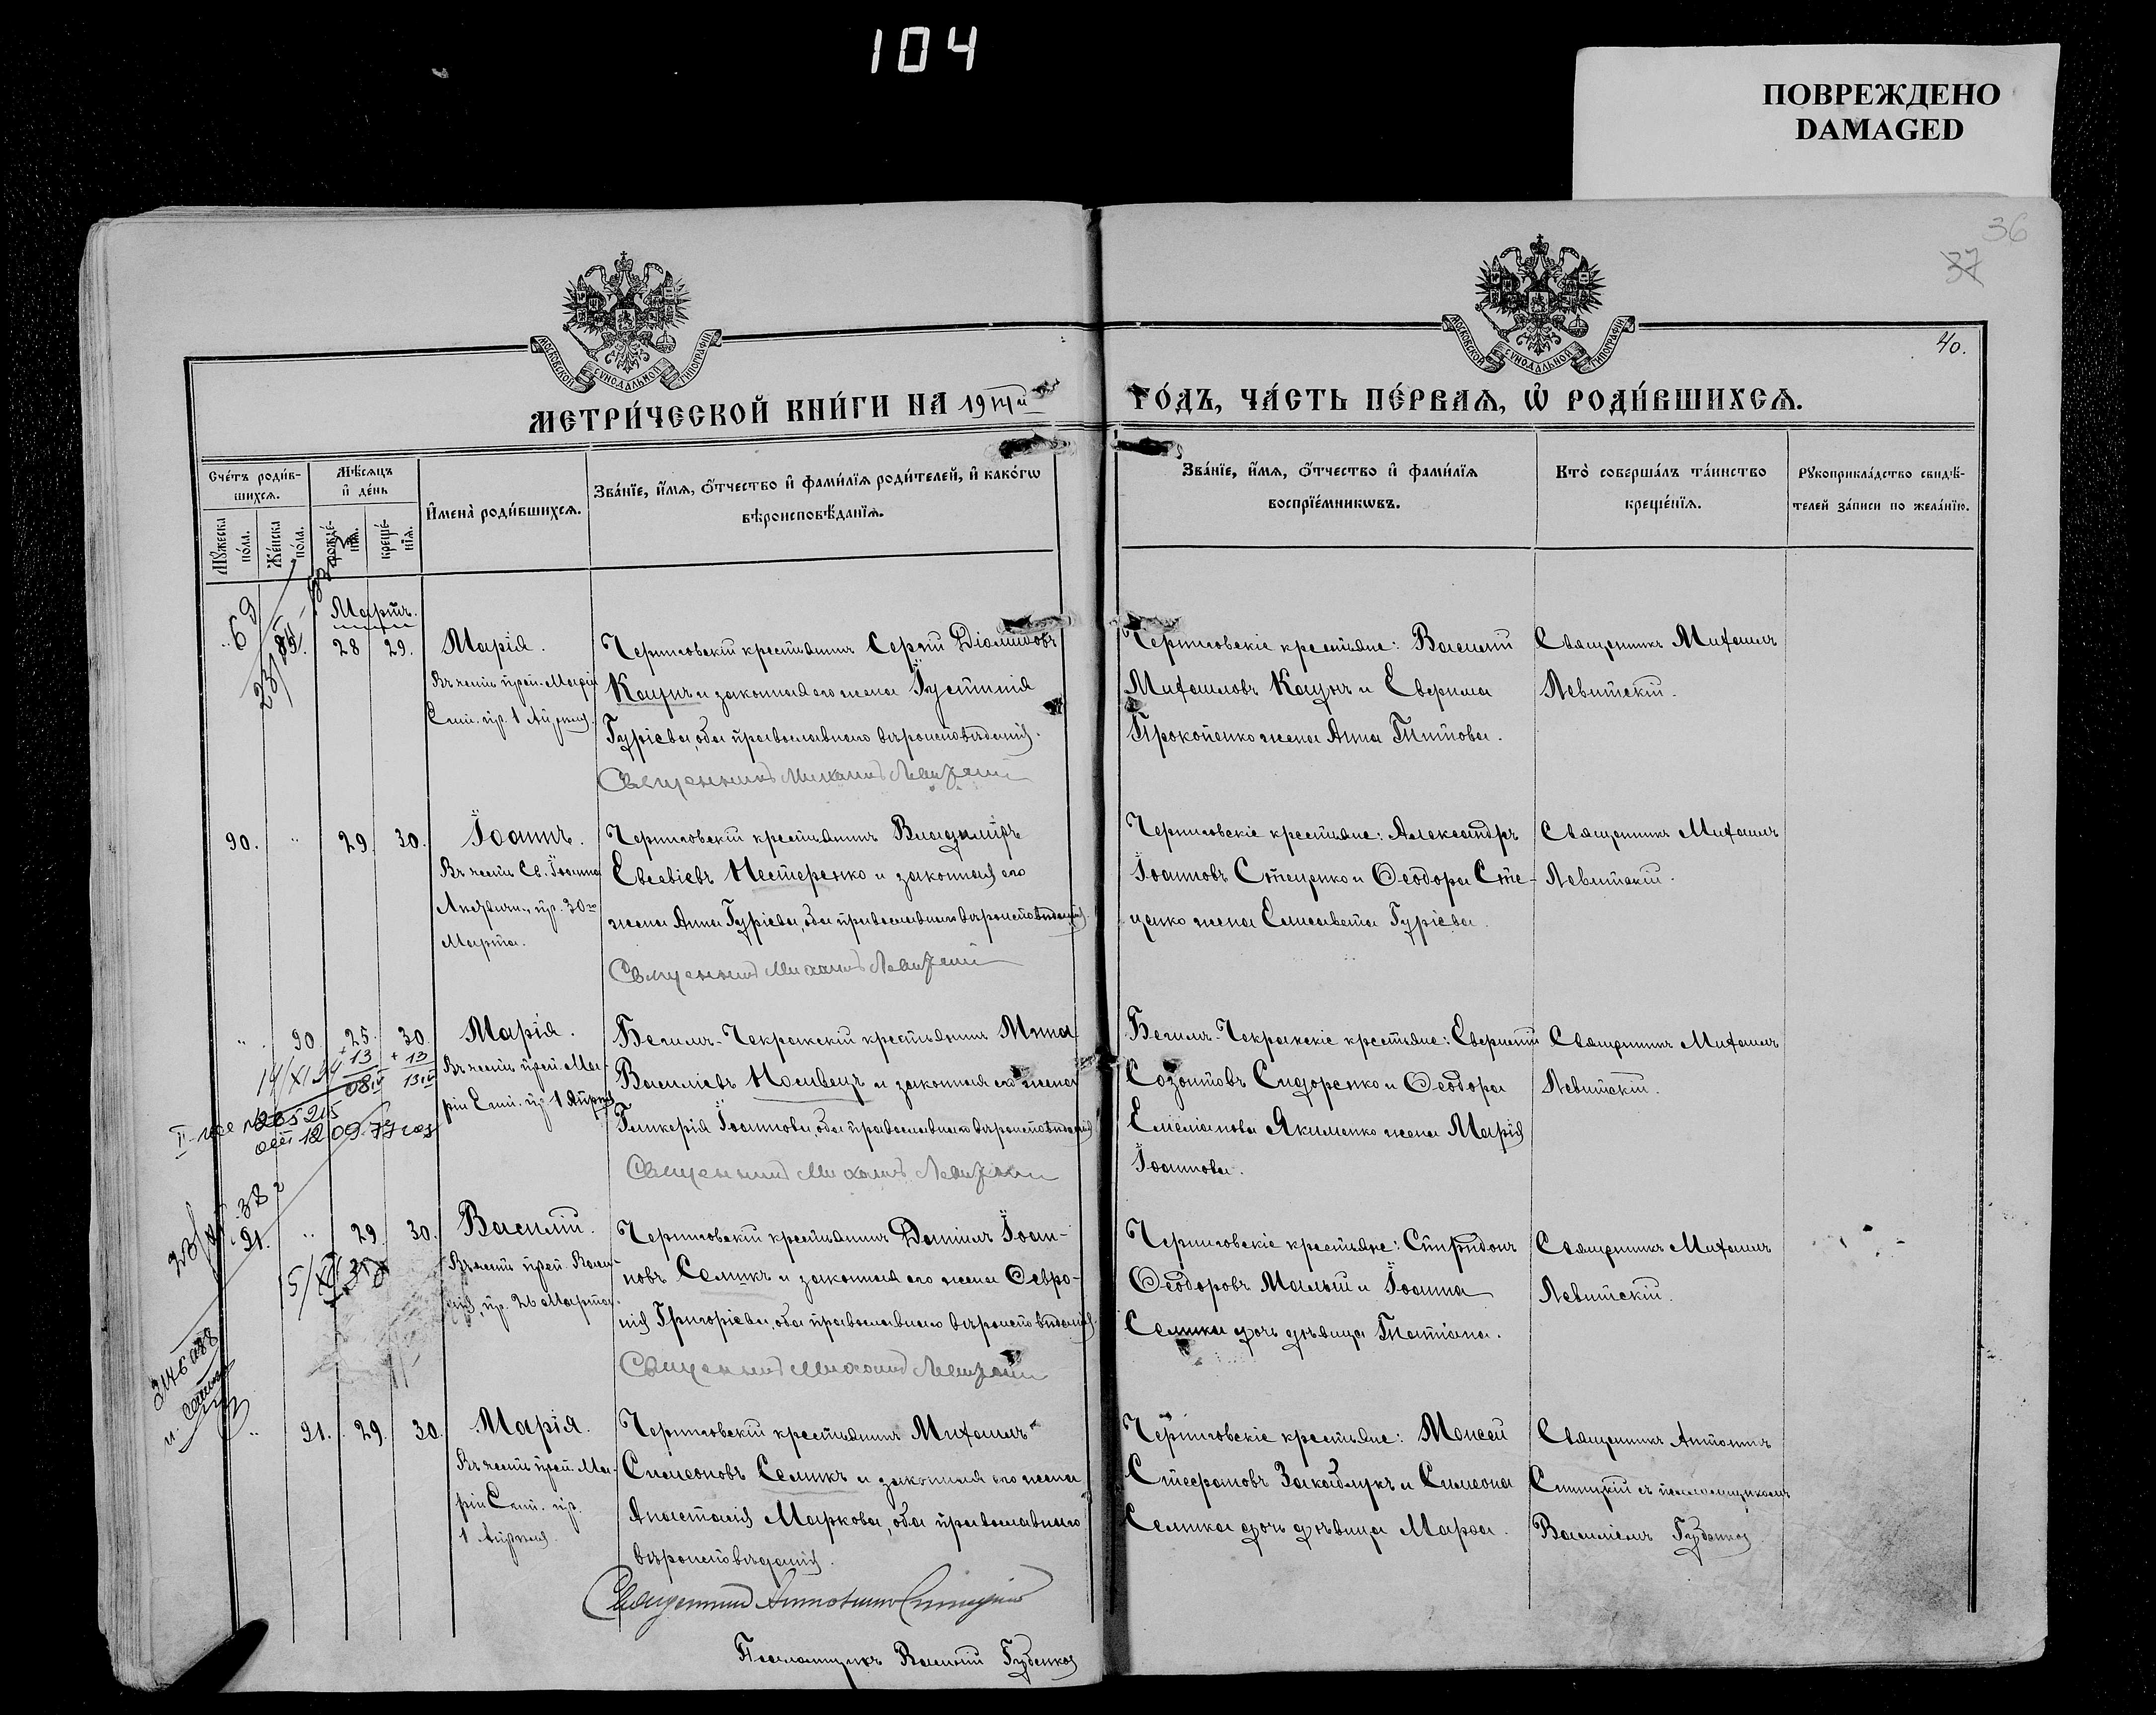 104
ПОВРЕЖДЕНО
DAMAGED
36
37
40.
МОСКОВСКОЙ СѴНОДАЛЬНОЙ ТИПОГРАФІИ
МОСКОВСКОЙ СѴНОДАЛЬНОЙ ТИПОГРАФІИ
МЕТРИ́ЧЕСКОЙ КНИ́ГИ НА 19
ГО́ДЪ, ЧА́СТЬ ПЕ́РВАѦ, Ѡ҆ РОДИ́ВШИХСѦ.
Сче́тъ роди́в-
шихсѧ.
Мѣ́сѧцъ
и҆ де́нь
Мꙋ́жеска по́ла.
Же́нска по́ла.
рожде́-
нїѧ.
креще́-
нїѧ.
И҆мена̀ роди́вшихсѧ.
Зва́нїе, и҆́мѧ, ѻ҆́тчество и҆ фамѝлїѧ роди́телей, и҆ како́гѡ
вѣроисповѣ́данїѧ.
Зва́нїе, и҆́мѧ, ѻ҆́тчество и҆ фами́лїѧ
воспрїе́мникѡвъ.
Кто̀ соверша́лъ та́инство
креще́нїѧ.
Рꙋкоприкла́дство свидѣ́-
телей за́писи по жела́нїю.
Мартъ.
28 29.
Марія.
Въ честь преп. Маріи
Егип. пр. 1 Апрѣля.
Черниговскій крестьянинъ Сергій
Кацунъ и законная его жена Іустинія
Гуріева, оба православнаго вѣроисповѣданія.
Священникъ Михаилъ Левитскій
Черниговскіе крестьяне: Василій
Михаиловъ Кацунъ и
Прокопенко жена Анна Титова.
Священникъ Михаилъ
Левитскій.
90. " 29. 30.
Іоаннъ.
Въ честь Св. Іоанна
пр. 30го
Марта.
Черниговскій крестьянинъ Владиміръ
Евсевіевъ Нестеренко и законная его
жена Анна Гуріева, оба православнаго вѣроисповѣданія.
Священникъ Михаилъ Левитскій
Черниговскіе крестьяне: Александръ
Іоанновъ Стеценко и Ѳеодора Сте-
ценко жена Елисавета Гуріева.
Священникъ Михаилъ
Левитскій.
" 90. 25. 30.
+13 +13
Марія.
Въ честь преп. Ма-
ріи Егип. пр. 1 Апрѣля
Бегимъ-Чокракскій крестьянинъ Мина
Василіевъ Носивецъ и законная его жена
Гликерія Іоаннова, оба православнаго вѣроисповѣданія
Священникъ Михаилъ Левитскій
Бегимъ-Чокракскіе крестьяне:
Созонтовъ Сидоренко и Ѳеодора
Емеліанова Якименко жена Марія
Іоаннова.
Священникъ Михаилъ
Левитскій.
91. " 29. 30.
Василій.
Въ честь преп. Васи-
лія, пр. 26 Марта.
Черниговскій крестьянинъ Даніилъ Іоан-
новъ Семикъ и законная его жена Февро-
нія Григоріева, оба православнаго вѣроисповѣданія.
Священникъ Михаилъ Левитскій
Черниговскіе крестьяне: Спиридонъ
Ѳеодоровъ Малый и Іоанна
Семика дочь дѣвица Татіана.
Священникъ Михаилъ
Левитскій.
" 91. 29. 30.
Марія.
Въ честь преп. Ма-
ріи Егип. пр.
1 Апрѣля.
Черниговскій крестьянинъ Михаилъ
Симеоновъ Семикъ и законная его жена
Анастасія Маркова, оба православнаго
вѣроисповѣданія.
Священникъ Антонинъ Синицкій
Псаломщикъ Василій Губенко
Черниговскіе крестьяне: Моисей
Стефановъ и Симеона
Семика дочь дѣвица Марѳа.
Священникъ Антонинъ
Синицкій съ псаломщикомъ
Василіемъ Губенко